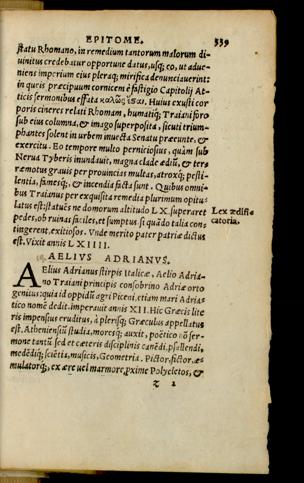 EPITOME. 339
statu Rhomano, in remedium tantorum malorum di-
uinitus credebatur opportune datus, usq; eo, ut adue-
niens imperium eius pleraq; mirifica denunciauerint:
in queis præcipuum cornicem è fastigio Capitolij At-
ticis sermonibus effata καλῶς ἔσαι. Huius exusti cor
poris cineres relati Rhomam, humatiq; Traiani foro
sub eius columna, & imago superposita, sicuti trium-
phantes solent in urbem inuecta Senatu præeunte, &
exercitu. Eo tempore multo perniciosius, quàm sub
Nerua Tyberis inundauit, magna clade ædiũ, & ter-
ræmotus grauis per prouincias multas, atroxq; pesti-
lentia, famesq;, & incendia facta sunt. Quibus omni-
bus Traianus per exquisita remedia plurimum opitu-
latus est: statuēs ne domorum altitudo LX. superaret
Lex ædifi
catoria.
pedes, ob ruinas faciles, et sumptus si quādo talia con-
tingerent, exitiosos. Vnde merito pater patriæ dictus
est. Vixit annis LXIIII.
AELIVS ADRIANVS.
AElius Adrianus stirpis italicæ, Aelio Adria-
no Traiani principis consobrino Adriæ orto
genitus: quia id oppidũ agri Piceni, etiam mari Adria-
tico nomē dedit. imperauit annis XII. Hic Græcis lite
ris impensius eruditus, à plerisq; Græculus appellatus
est. Atheniensiũ studia, moresq; auxit, poëtico nō ser-
mone tantũ sed et cæteris disciplinis canēdi, psallendi,
medēdiq; sciētia, musicis, Geometria. Pictor, fictor, æ-
mulatorq;, ex ære uel marmore, pxime Polycletos, &
z 2